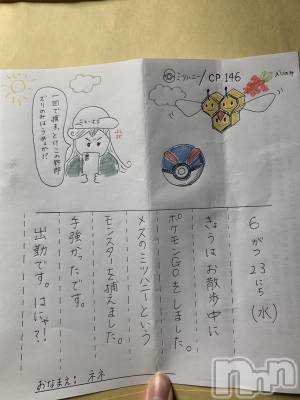 ミツハニー/CP 146
ズリのみ
一回で捕まっとけこの野郎
ズリのみはうめぇか!?
6がつ23にち(水)
きょうはお散歩中に
ポケモンGOをしました。
メスのミツハニーという
モンスターを捕えました。
手強かったです。
出勤です。はにゃ?!
おなまえ:ネネ